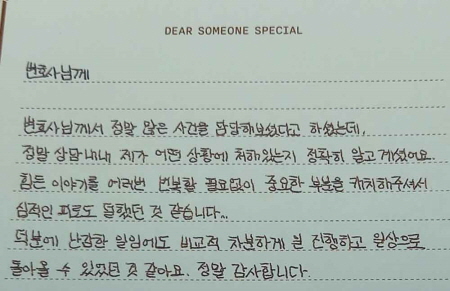 DEAR SOMEONE SPECIAL
변호사님께
변호사님께서 정말 많은 사건을 담당해보셨다고 하셨는데,
정말 상담내내 제가 어떤 상황에 처해있는지 정확히 알고계셨어요.
힘든 이야기를 여러번 번복할 필요없이 중요한 부분을 캐치해주셔서
심적인 피로도 덜했던 것 같습니다..
덕분에 난감한 일임에도 비교적 차분하게 잘 진행하고 일상으로
돌아올 수 있었던 것 같아요. 정말 감사합니다.